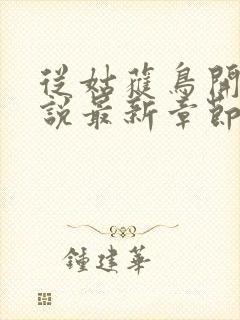 從姑蘿鳥開
說最新章節
鍾建華